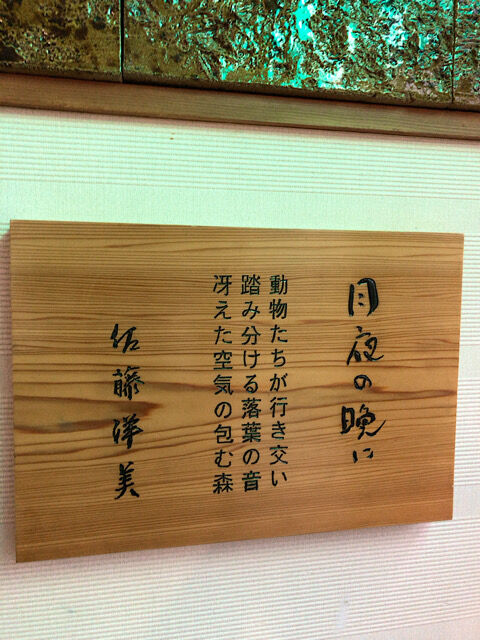 月夜の晩に
動物たちが行き交い
踏み分ける落葉の音
冴えた空気の包む森
佐藤洋美